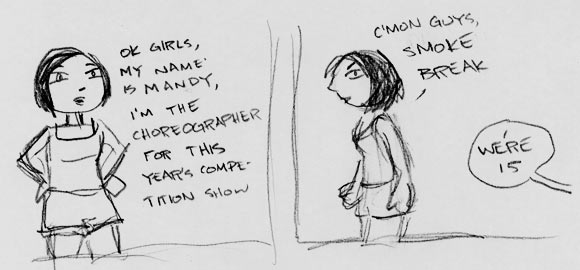 OK GIRLS,
MY NAME
IS MANDY,
I'M THE
CHOREOGRAPHER
FOR THIS
YEAR'S COMPE-
TITION SHOW
C'MON GUYS,
SMOKE
BREAK
WE'RE
15